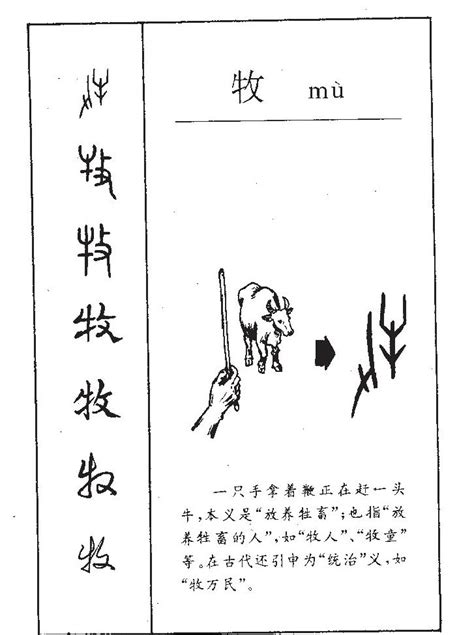 牧 mù
一只手拿着鞭正在赶一头
牛，本义是“放养牲畜”；也指“放
养牲畜的人”，如“牧人”、“牧童”
等。在古代还引申为“统治”义，如
“牧万民”。
牧
牧
牧
牧
牧
牧
牧